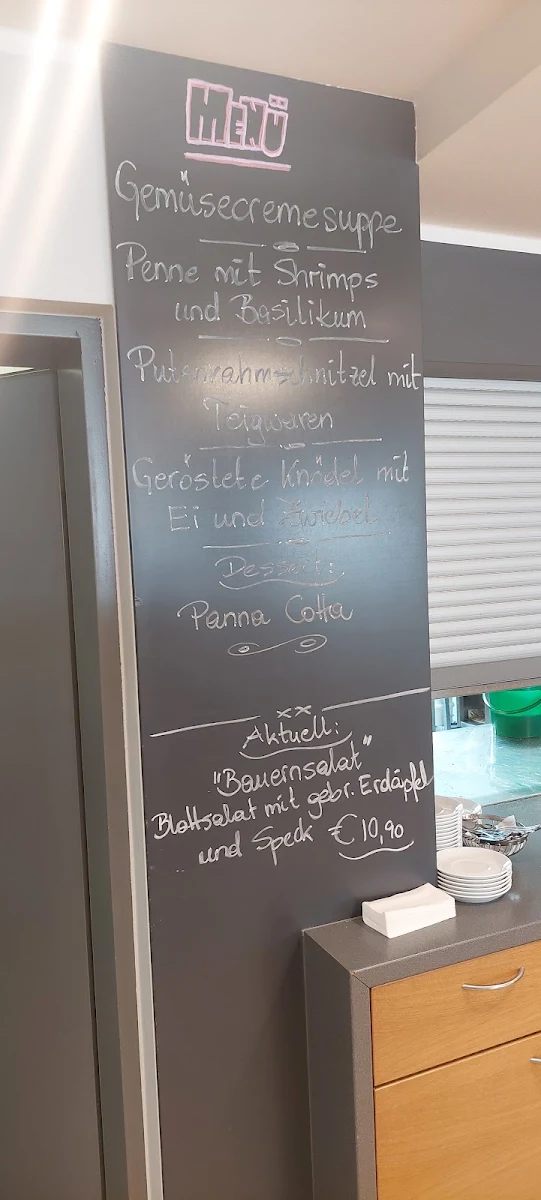 MENÜ
Gemüsecremesuppe
Penne mit Shrimps
und Basilikum
Putenrahmschnitzel mit
Teigwaren
Geröstete Knödel mit
Ei und Zwiebel
Dessert:
Panna Cotta
Aktuell:
"Bauernsalat"
Blattsalat mit gebr. Erdäpfel
und Speck € 10,90